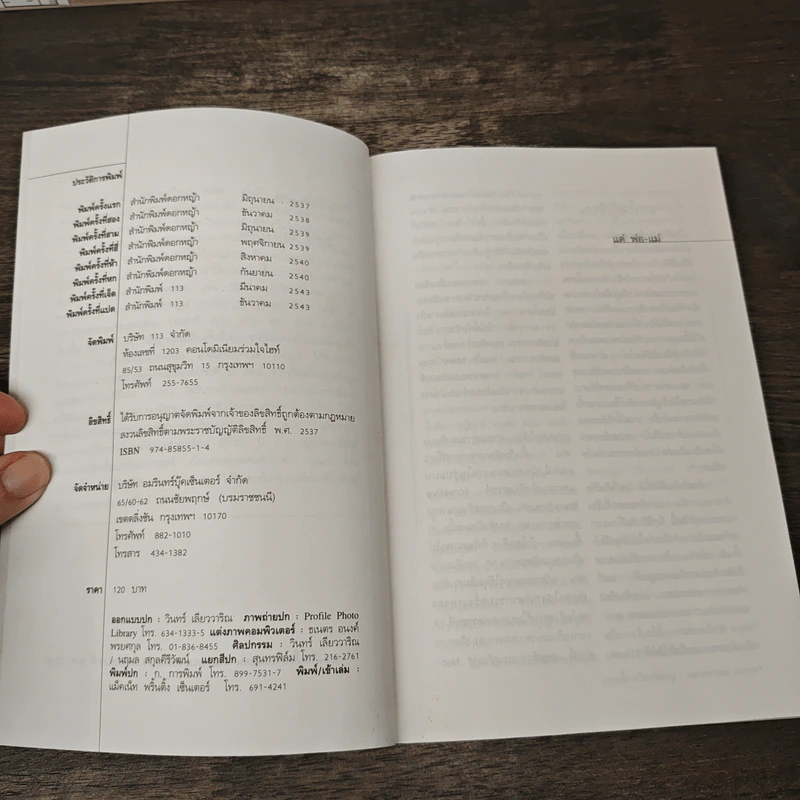 ประวัติการพิมพ์
พิมพ์ครั้งแรก สำนักพิมพ์ดอกหญ้า มิถุนายน 2537
พิมพ์ครั้งที่สอง สำนักพิมพ์ดอกหญ้า ธันวาคม 2538
พิมพ์ครั้งที่สาม สำนักพิมพ์ดอกหญ้า มิถุนายน 2539
พิมพ์ครั้งที่สี่ สำนักพิมพ์ดอกหญ้า พฤศจิกายน 2539
พิมพ์ครั้งที่ห้า สำนักพิมพ์ดอกหญ้า สิงหาคม 2540
พิมพ์ครั้งที่หก สำนักพิมพ์ดอกหญ้า กันยายน 2540
พิมพ์ครั้งที่เจ็ด สำนักพิมพ์ 113 มีนาคม 2543
พิมพ์ครั้งที่แปด สำนักพิมพ์ 113 ธันวาคม 2543
จัดพิมพ์ บริษัท 113 จำกัด
ห้องเลขที่ 1203 คอนโดมิเนียมร่วมใจไฮท์
85/53 ถนนสุขุมวิท 15 กรุงเทพฯ 10110
โทรศัพท์ 255-7655
ลิขสิทธิ์ ได้รับการอนุญาตจัดพิมพ์จากเจ้าของลิขสิทธิ์ถูกต้องตามกฎหมาย
สงวนลิขสิทธิ์ตามพระราชบัญญัติลิขสิทธิ์ พ.ศ. 2537
ISBN 974-85855-1-4
จัดจำหน่าย บริษัท อมรินทร์บุ๊คเซ็นเตอร์ จำกัด
65/60-62 ถนนชัยพฤกษ์ (บรมราชชนนี)
เขตตลิ่งชัน กรุงเทพฯ 10170
โทรศัพท์ 882-1010
โทรสาร 434-1382
ราคา 120 บาท
ออกแบบปก : วินทร์ เลียววาริณ ภาพถ่ายปก : Profile Photo
Library โทร. 634-1333-5 แต่งภาพคอมพิวเตอร์ : ธเนตร อนงค์
พรยศกุล โทร. 01-836-8455 ศิลปกรรม : วินทร์ เลียววาริณ
/ นฤมล สกุลคีรีวัฒน์ แยกสีปก : สุนทรฟิล์ม โทร. 216-2761
พิมพ์ปก : ก. การพิมพ์ โทร. 899-7531-7 พิมพ์/เข้าเล่ม :
แม็คเน็ท พริ้นติ้ง เซ็นเตอร์ โทร. 691-4241
แด่ พ่อ-แม่